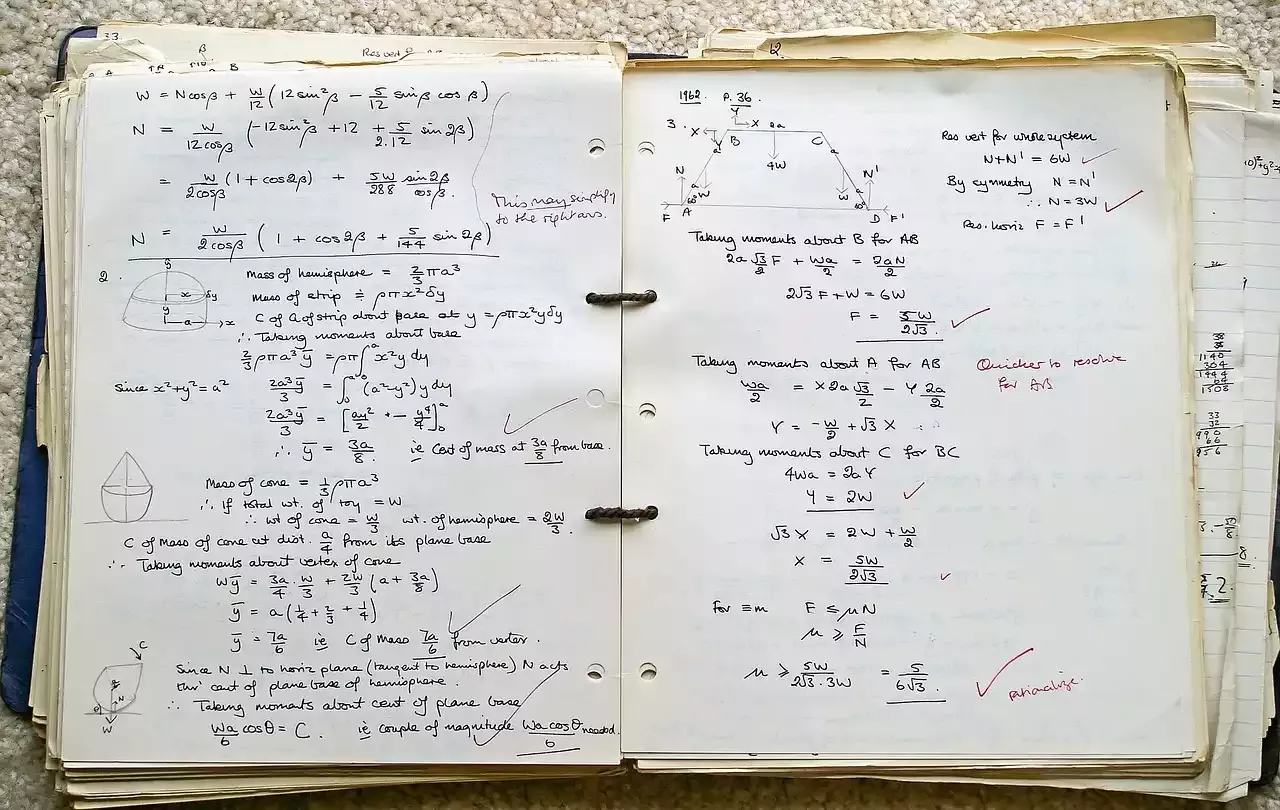 33.
Res vert
W = Ncosβ + W/12 (12 sin²β − 5/12 sinβ cosβ)
N = W/12cosβ (−12sin²β + 12 + 5/2.12 sin2β)
= W/2cosβ (1 + cos2β) + 5W/288 sin2β/cosβ.
This may simplify
to the right ans.
N = W/2cosβ (1 + cos2β + 5/144 sin2β)
2.
Mass of hemisphere = 2/3 πa³
Mass of strip ≑ ρπx²δy
C of G of strip about base at y = ρπx²yδy
∴ Taking moments about base
2/3 ρπa³ȳ = ρπ∫₀ᵃ x²y dy
since x²+y²=a² 2a³ȳ/3 = ∫₀ᵃ (a²−y²)y dy
2a³ȳ/3 = [ay²/2 − y⁴/4]₀ᵃ
∴ ȳ = 3a/8 ie Cent of mass at 3a/8 from base.
Mass of cone = 1/3 ρπa³
∴ If total wt. of toy = W
∴ wt of cone = W/3 wt. of hemisphere = 2W/3.
C of Mass of cone at dist. a/4 from its plane base
∴ Taking moments about vertex of cone
Wȳ = 3a/4 . W/3 + 2W/3 (a + 3a/8)
ȳ = a(1/4 + 2/3 + 1/4)
ȳ = 7a/6 ie C of Mass 7a/6 from vertex.
Since N ⊥ to horiz plane (tangent to hemisphere) N acts
thro' cent of plane base of hemisphere.
∴ Taking moments about cent of plane base
Wa/6 cosθ = C. ie couple of magnitude Wa cosθ/6 needed.
12.
1962 P. 36.
3.
Y
X X 2a
B C
a 4W a
N N'
a W W a
60° 60°
F A D F'
Res vert for whole system
N+N' = 6W
By symmetry N = N'
∴ N = 3W
Res. horiz F = F'
Taking moments about B for AB
2a √3/2 F + Wa/2 = 2aN/2
2√3 F + W = 6W
F = 5W/2√3.
Taking moments about A for AB
Quicker to resolve
for AB
Wa/2 = X 2a √3/2 − Y 2a/2
Y = −W/2 + √3 X
Taking moments about C for BC
4Wa = 2aY
Y = 2W
√3 X = 2W + W/2
X = 5W/2√3
For ≡m F ≤ μN
μ ≥ F/N
μ ≥ 5W/2√3.3W = 5/6√3.
rationalize.
1140
304
1444
64
1508
33
32